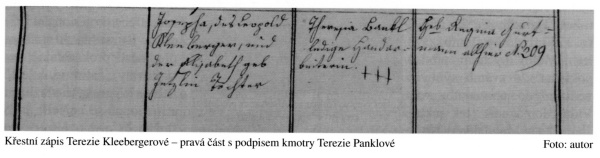 Josepha, des Leopold
Kleeberger, und
der Elisabeth geb
Tochter
Theresia Bankl
ledige Handar-
beiterin. +++
Heb Regina Hurt=
mann allhier N. 209
Křestní zápis Terezie Kleebergerové – pravá část s podpisem kmotry Terezie Panklové
Foto: autor